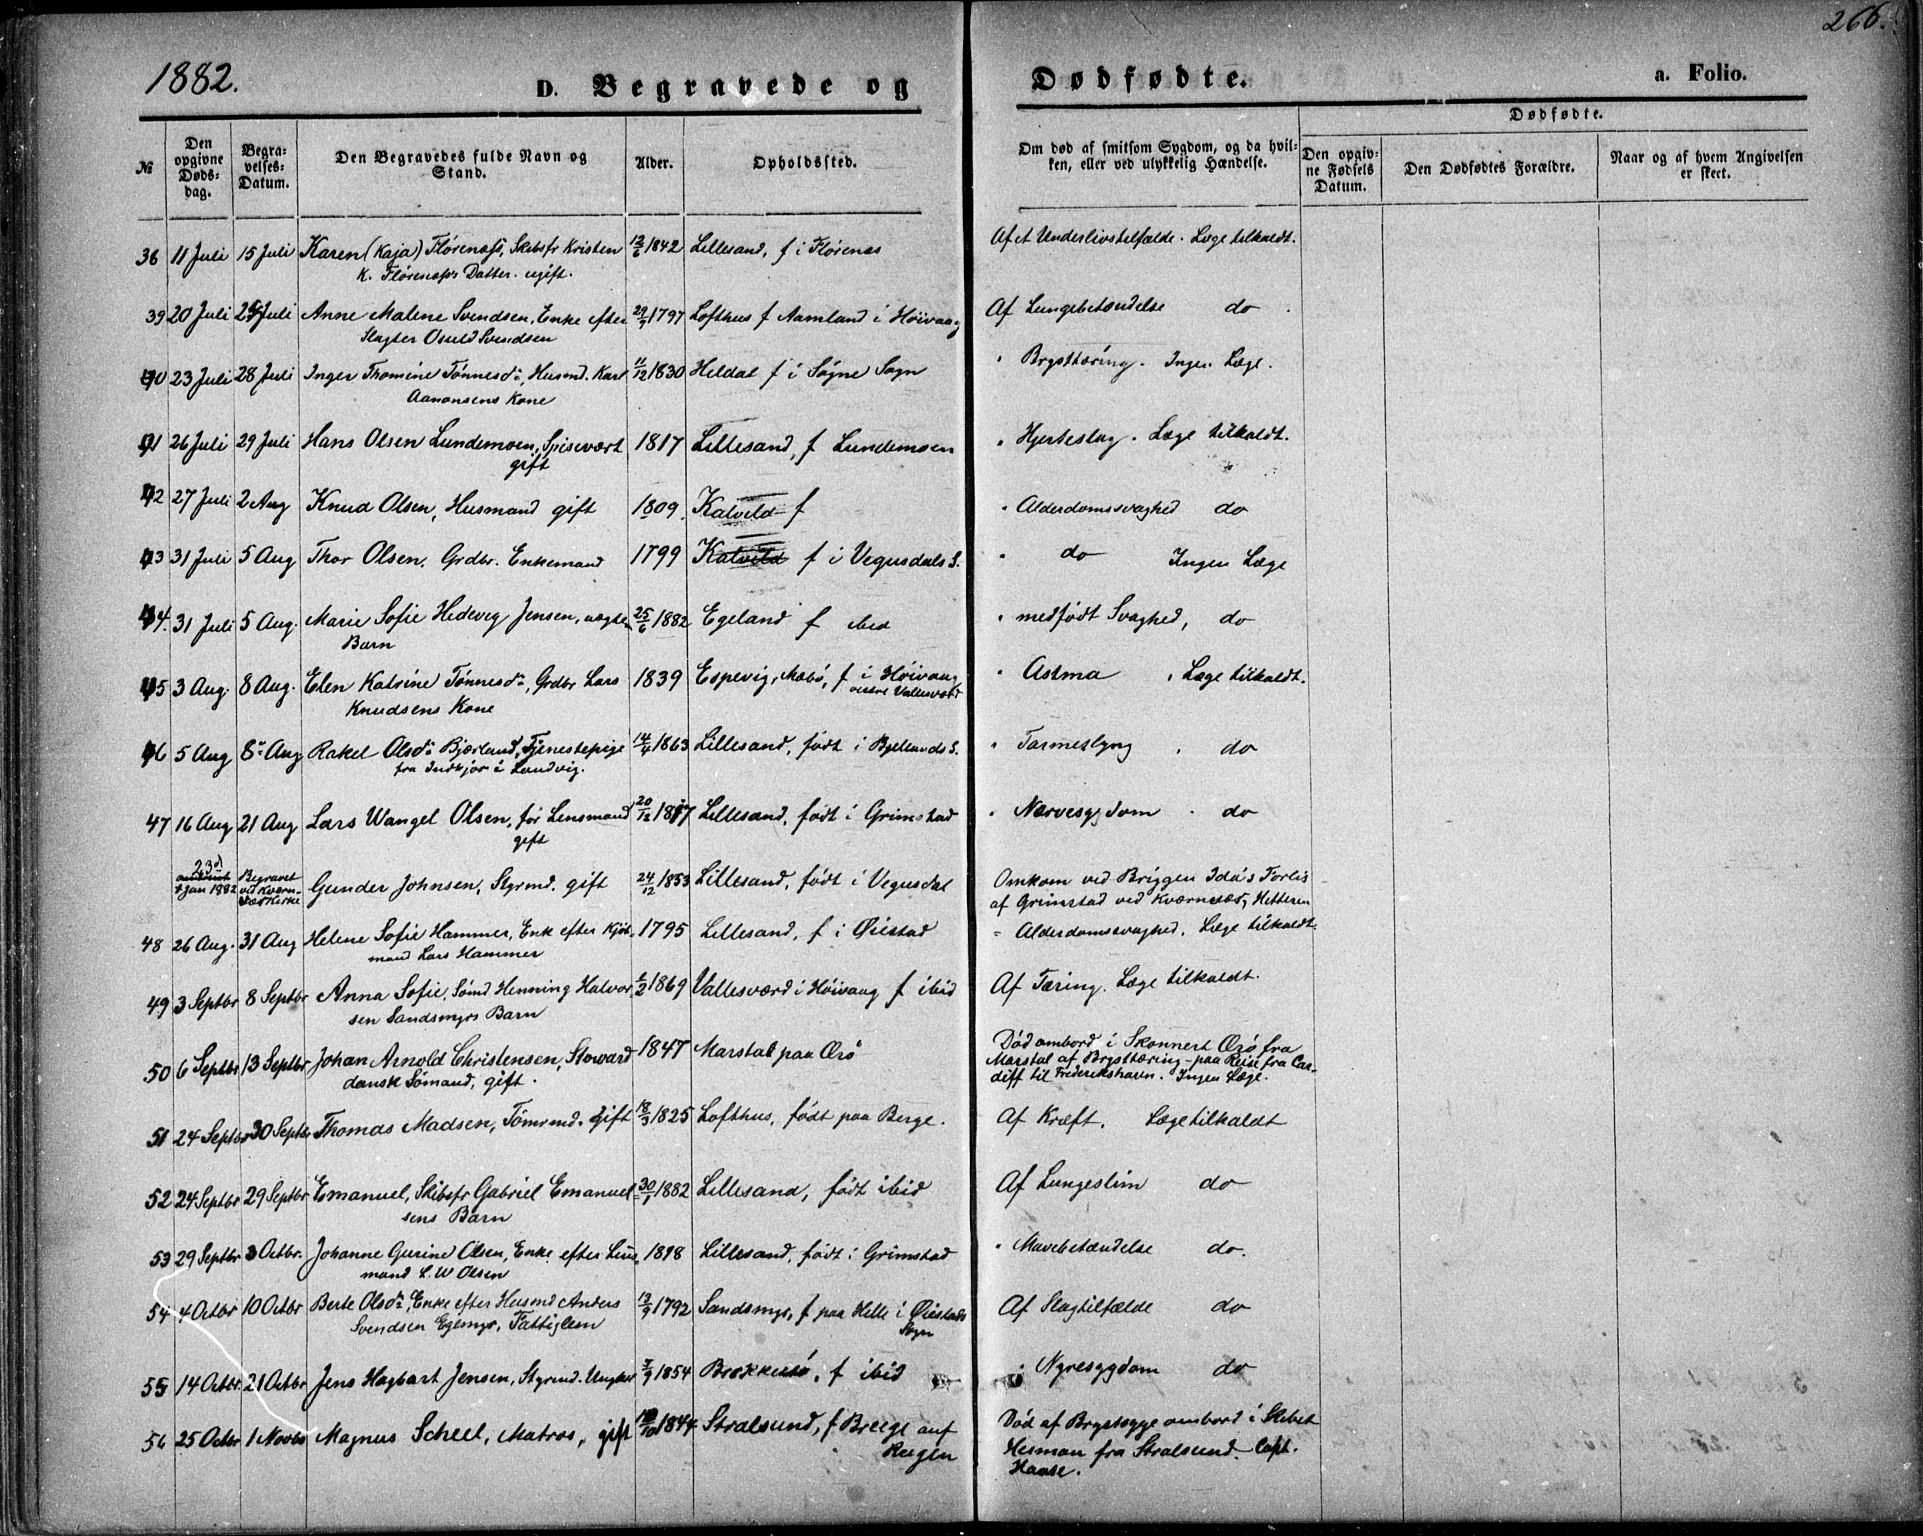 266.
1882.
D. Begravede og Dødfødte. a. Folio.
№
Den opgivne Dødsdag.
Begravelses-Datum.
Den Begravedes fulde Navn og Stand.
Alder.
Opholdssted.
Om død af smitsom Sygdom, og da hvilken, eller ved ulykkelig Hændelse.
Dødfødte.
Den opgivne Fødsels Datum.
Den Dødfødtes Forældre.
Naar og af hvem Angivelsen er skeet.
38 11 Juli 15 Juli Karen (Kaja) Flørenæss, Skibsfr Kristen 12/6 1842 Lillesand, f i Flørenes Af et Underlivstilfælde. Læge tilkaldt.
K. Flørenæss Datter. ugift.
39 20 Juli 25 Juli Anne Malene Svendsen, Enke efter 29/9 1797 Lofthus f Aamland i Høivaag Af Lungebetændelse do
Slagter Osuld Svendsen
40 23 Juli 28 Juli Inger Thomine Tønnesdr, Husmd. Karl 11/12 1830 Heldal f i Søgne Sogn " Brysttæring. Ingen Læge.
Aanonsens Kone
41 26 Juli 29 Juli Hans Olsen Lundemoen, Spisevært 1817 Lillesand, f Lundemoen " Hjerteslag. Læge tilkaldt.
gift
42 27 Juli 2 Aug Knud Olsen, Husmand gift 1809 Kalvild f " Alderdomssvaghed do
43 31 Juli 5 Aug Thor Olsen, Grdbr. Enkemand 1799 Kalvild f i Vegusdals S. " do Ingen Læge
44. 31 Juli 5 Aug. Marie Sofie Hedevig Jensen, ægte 25/6 1882 Egeland f ibid " medfødt Svaghed, do
Barn
45 3 Aug. 8 Aug. Elen Katrine Tønnesdr, Grdbr Lars 1839 Espevig, Mæbø, f i Høivaag " Astma. Læge tilkaldt.
Knudsens Kone vestre Vallesværd
46 5 Aug 8 Aug Rakel Olsdr Bjørland, Tjenestepige 14/4 1863 Lillesand, født i Bjellands S. " Tarmeslyng. do
fra Indkjør i Landvig.
47 16 Aug 21 Aug Lars Wangel Olsen, før Lensmand 20/12 1817 Lillesand, født i Grimstad " Nervesygdom. do
gift
23d
Jan 1882 Begravet ved Kværnes Kirke Gunder Johnsen, Styrmd. gift 24/12 1853 Lillesand, født i Vegusdal Omkom ved Briggen Ida's Forlis
af Grimstad ved Kværnesæs, Hitteren
48 26 Aug. 31 Aug Helene Sofie Hammer, Enke efter Kjøb- 1795 Lillesand, f i Øiestad " Alderdomssvaghed. Læge tilkaldt.
mand Lars Hammer
49 3 Septbr 8 Septbr Anna Sofie, Sømd Henning Halvor 1/2 1869 Vallesværd i Høivaag f ibid Af Tæring. Læge tilkaldt.
sen Sandsmyrs Barn
50 6 Septbr 13 Septbr Johan Arnold Christensen, Stoward 1847 Marstal paa Ærø Død ombord i Skonnert Ærø fra
dansk Sømand, gift. Marstal af Brysttæring - paa Reise fra Car-
diff til Frederikshavn. Ingen Læge.
51 24 Septbr 30 Septbr Thomas Madsen, Tømrmd. gift 18/3 1825 Lofthus, født paa Berge. Af Kræft. Læge tilkaldt
52 24 Septbr 29 Septbr Emanuel, Skibsfr Gabriel Emanuel 30/1 1882 Lillesand, født ibid Af Lungeslim do
sens Barn
53 29 Septbr 3 Octbr. Johanne Gurine Olsen, Enke efter Lens- 1818 Lillesand, født i Grimstad " Mavebetændelse do.
mand L. W Olsen
54 4 Octbr 10 Octbr Berte Olsdr, Enke efter Husmd Anders 13/9 1792 Sandsmyr, f paa Helle i Øiestads Af Slagtilfælde do
Svendsen Egemyr, Fattiglem Sogn
55 14 Octbr. 21 Octbr Jens Hagbart Jensen, Styrmd. Ungkar 7/9 1854 Brækkestø, f ibid " Nyresygdom do
56 25 Octbr 1 Novbr Magnus Scheel, Matros, gift 10/10 1844 Stralsund, f Breege auf Død af Brystsyge ombord i Skibet
Rugen Herman fra Stralsund. Capt.
Haase.